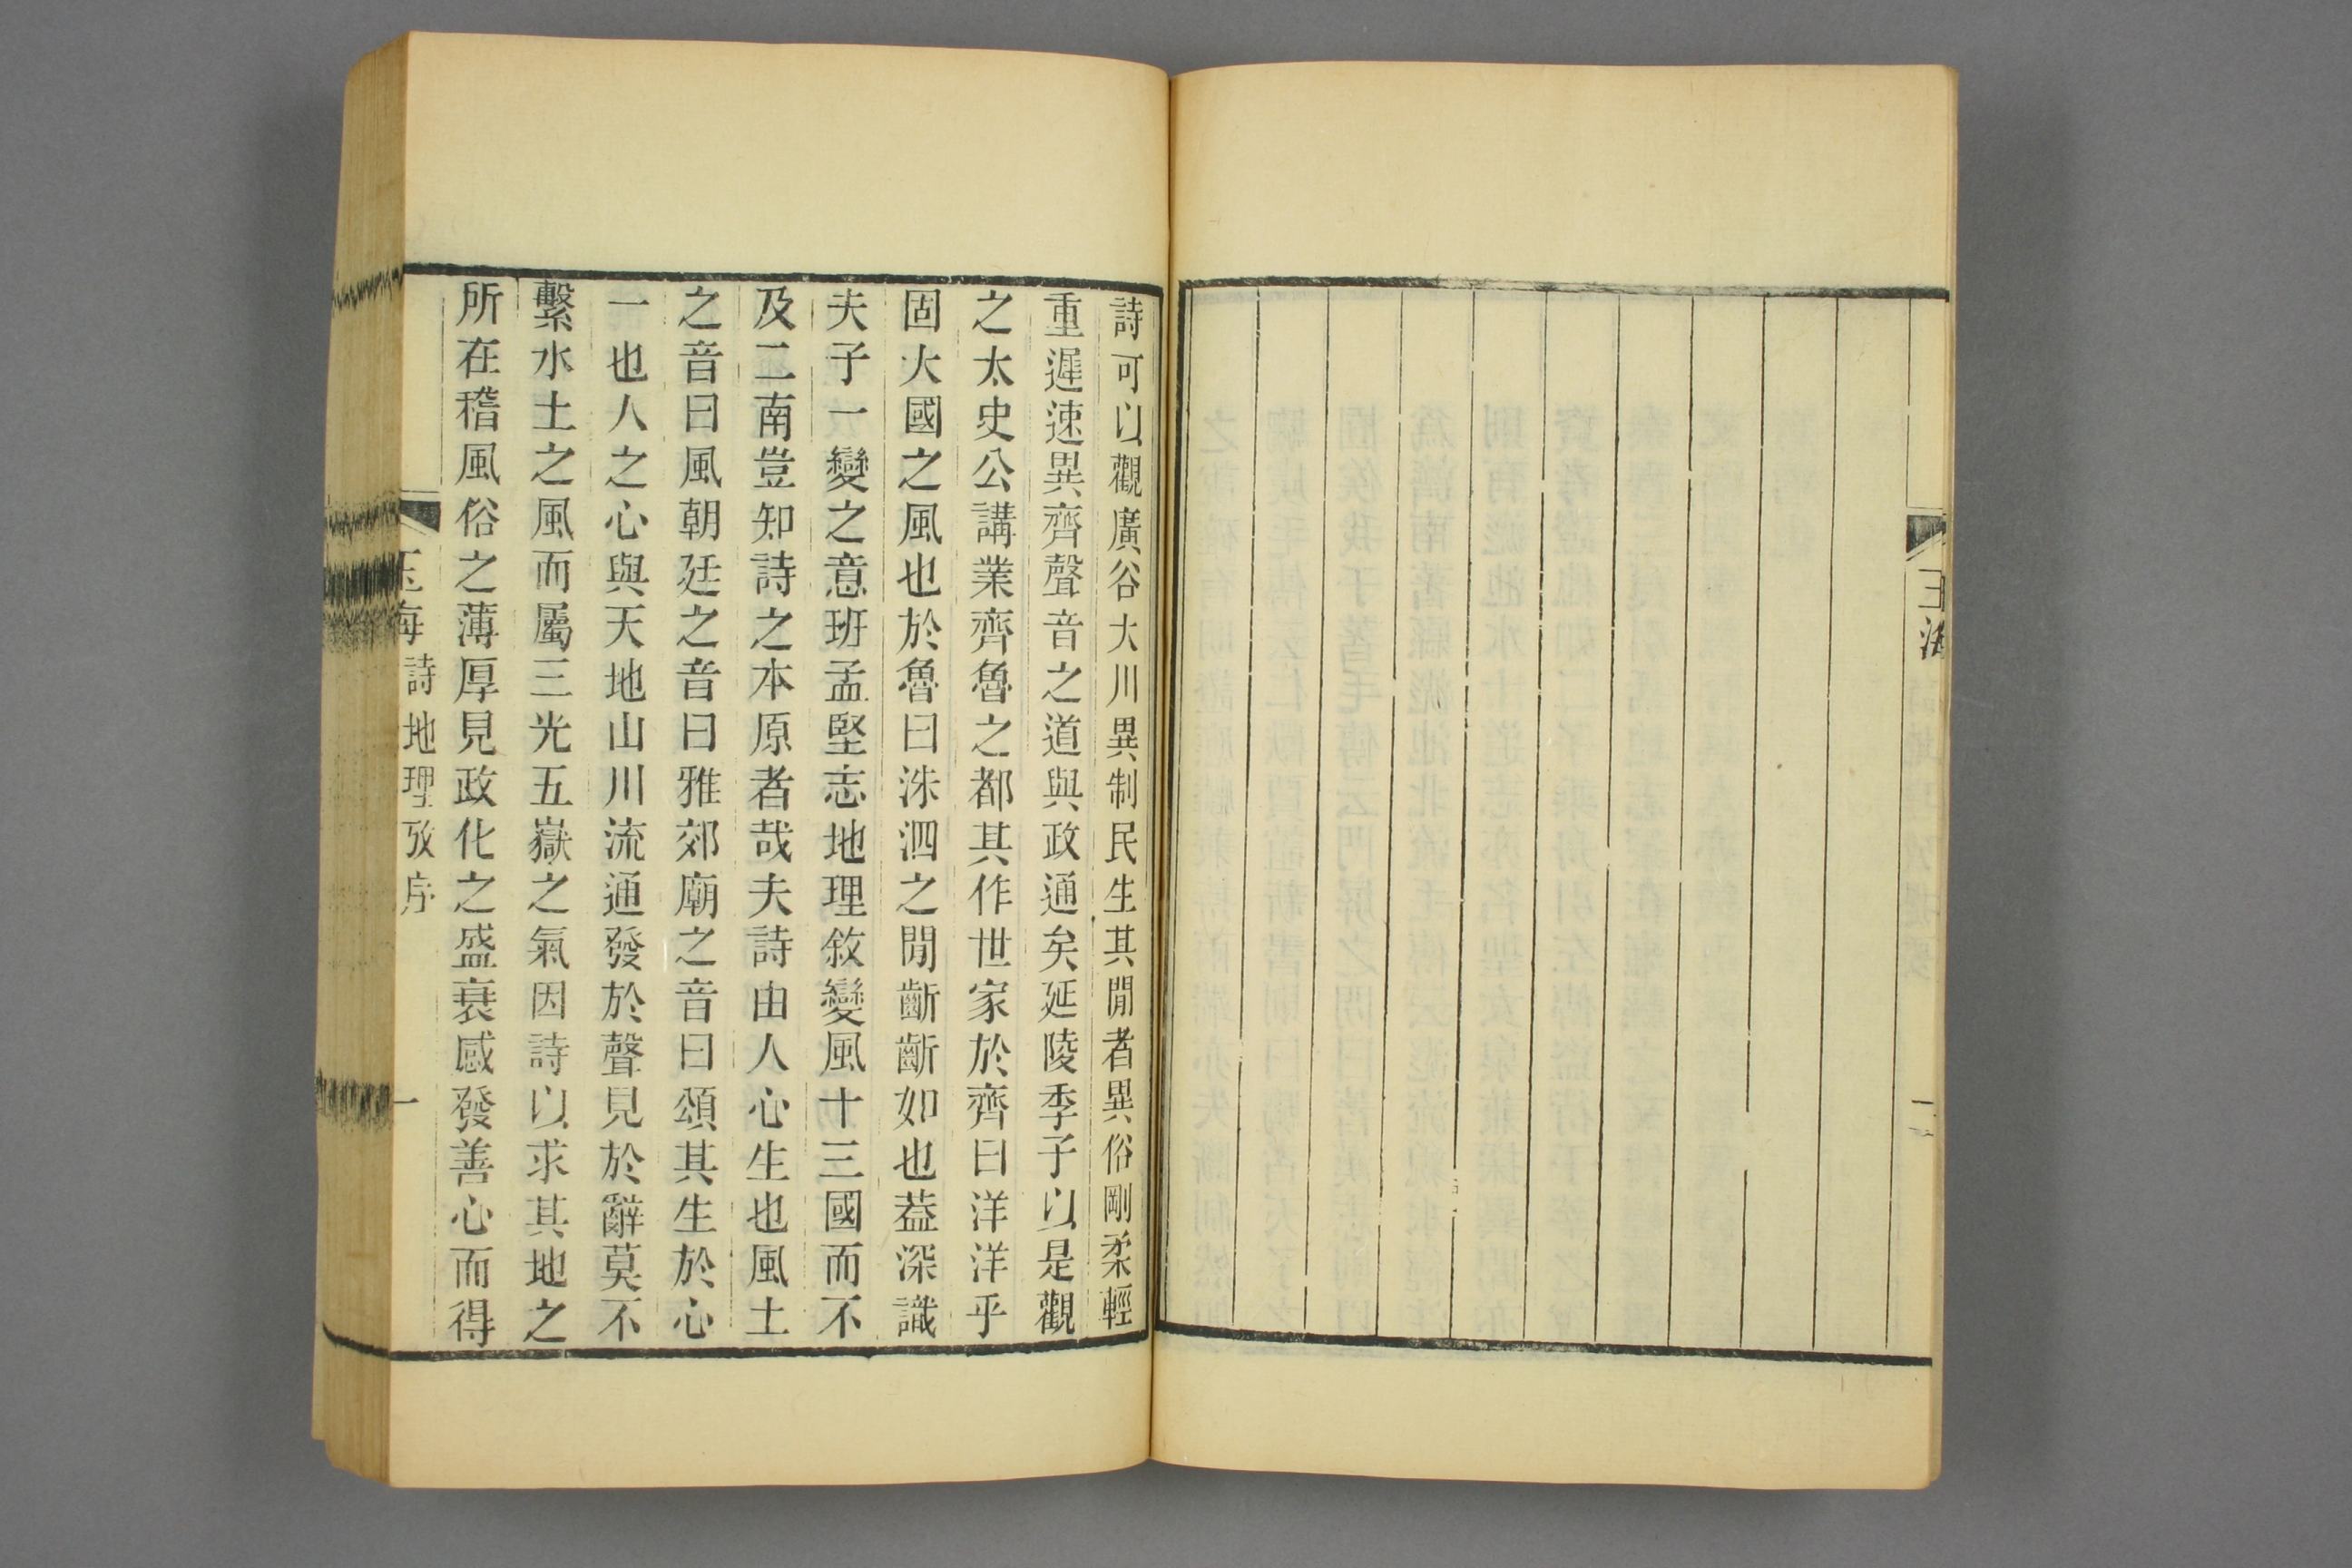 王海
二
詩可以觀廣谷大川異制民生其閒者異俗剛柔輕
重遲速異齊聲音之道與政通矣延陵季子以是觀
之太史公講業齊魯之都其作世家於齊曰洋洋乎
固大國之風也於魯曰洙泗之閒齗齗如也葢深識
夫子一變之意班孟堅志地理敘變風十三國而不
及二南豈知詩之本原者哉夫詩由人心生也風土
之音曰風朝廷之音曰雅郊廟之音曰頌其生於心
一也人之心與天地山川流通發於聲見於辭莫不
繫水土之風而屬三光五嶽之氣因詩以求其地之
所在稽風俗之薄厚見政化之盛衰感發善心而得
玉海詩地理攷序
一